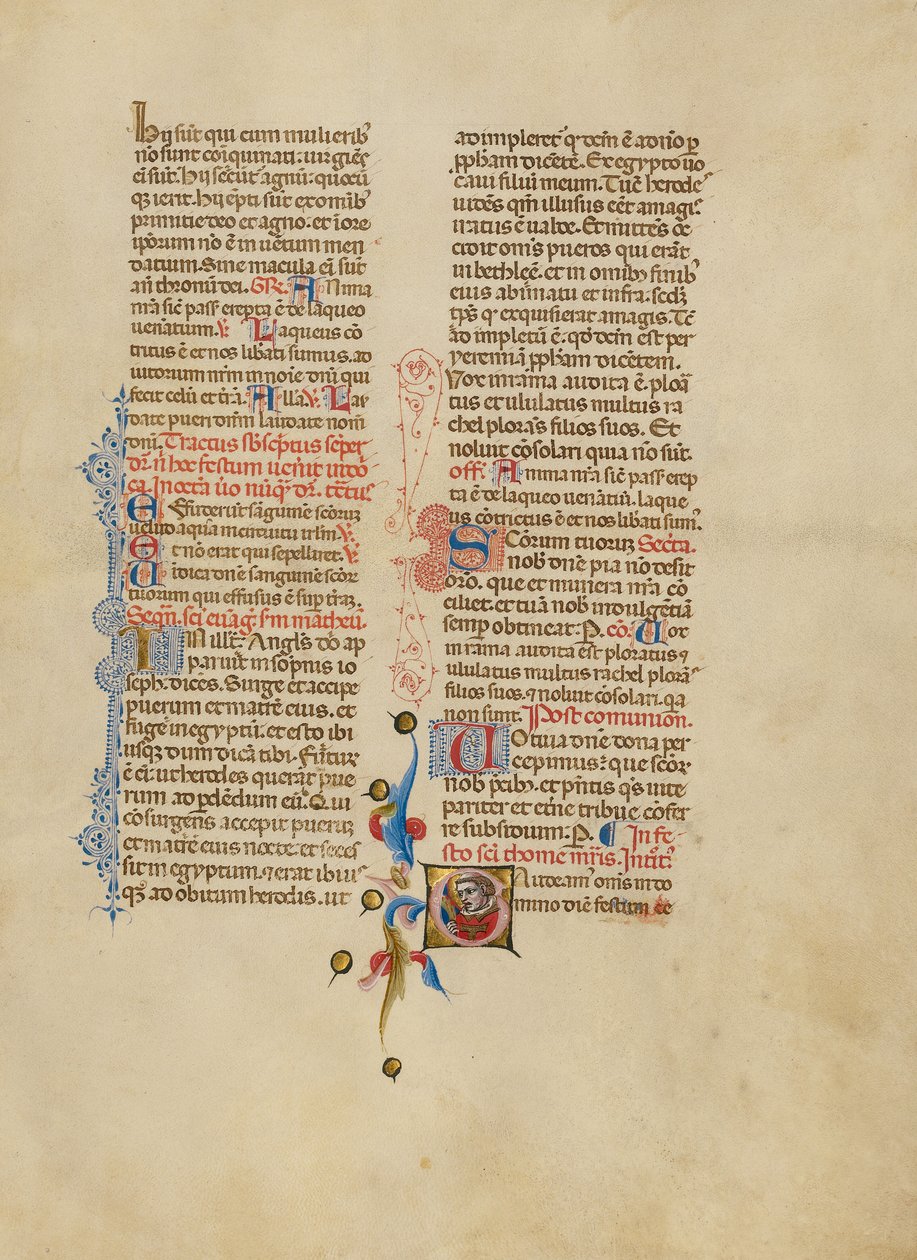 Hij sūt qui cum mulierib᾽
nō sunt coīquinati: uirgīēs
eī sūt. Hij secūt̄ agnū: quocū
qꝫ ierit. Hij ēpti sūt ex omīb᾽
primitie deo et agno: et ī ore
ip̄orum nō ē in uētum men
datium. Sine macula eī sūt
an̄ thronū dei. GR. Anima
nr̄a sic̄ pass̄ erepta ē de laqueo
uenātium. V. Laqueus cō
tritus ē et nos lib̄ati sumus. ad
iutorium nr̄m in noīe dn̄i qui
fecit celū et t̄rā. Alla. V. Lau
date pueri dn̄m laudate nom̄
dn̄i. Tractus sb̄sc̄ptus sēper
dr̄. ñ hoc festum uen̄it ī d̄o
ca. In oct̄a ūo nūqᷓ dr̄. tc̄tus
Effuderūt sanguinē scōꝝ
uelud aquā in circuitu ir̄lm̄. V.
Et nō erat qui sepelliret. V.
Uīdica dn̄e sanguinē scōꝝ
tuorum qui effusus ē sup̄ t̄rā.
Seqn̄. sc̄i euāg. s̄m matheū.
In ill̄. t̄. Angl̄s d̄o ap
paruit in sōpnis io
seph. dicēs. Surge et accipe
puerum et matrē eius. et
fuge in egyptū. et esto ibi
usqꝫ dum dicā tibi. Fut̄uꝝ
ē eī. ut herodes querat pue
rum ad p̄dēdum eū. Qui
cōsurgens accepit pueꝝ
et matrē eius nocte: et seces
sit in egyptum. ⁊ erat ibi us
qꝫ ad obitum herodis. ut
adimpleret᷑ qd̄ dcm̄ ē a dn̄o p̄
p̄ph̄am dicētē. Ex egypto uo
caui filiū meum. Tūc herodes
uidēs qm̄ illusus eēt a magis
iratus ē ualde. Et mittēs oc
cidit om̄s pueros qui erāt
in bethleē. et in omīb᾽ finib᾽
eius a bīmatu et infra. scd̄ꝫ
tp̄s qd̄ exquisierat a magis. Tc̄
adimpletū ē. qd̄ dcm̄ est per
yeremiā p̄ph̄am dicētem.
Vox in rama audita ē. ploᷓ
tus et ululatus multus ra
chel plorās filios suos. Et
noluit cōsolari quia nō sūt.
off̄. Anima nr̄a sic̄ pass̄ erep
ta ē de laqueo uenātiū. laque
us cōtrictus ē et nos lib̄ati sum᾽.
Scōrum tuorum Sec̄ta.
nob̄ dn̄e pia nō desit
orō. que et munera nr̄a cō
ciliet. et tuā nob̄ indulgētiā
semp̄ obtineat. P. cō. Uox
in rama audita est ploratus ⁊
ululatus multus rachel plorās
filios suos. ⁊ noluit cōsolari. qa
non sunt. Post comunion̄.
Uotiua dn̄e dona per
cepimus: que scōꝝ
nob̄ p̄cib᾽. et p̄ntis qs̄ uite
pariter et et̄ne tribue cōfer
re subsidium. P. In fe-
sto sc̄i thome mr̄is. Intoit᾽.
Audeam᾽ om̄s in do
mino diē festum